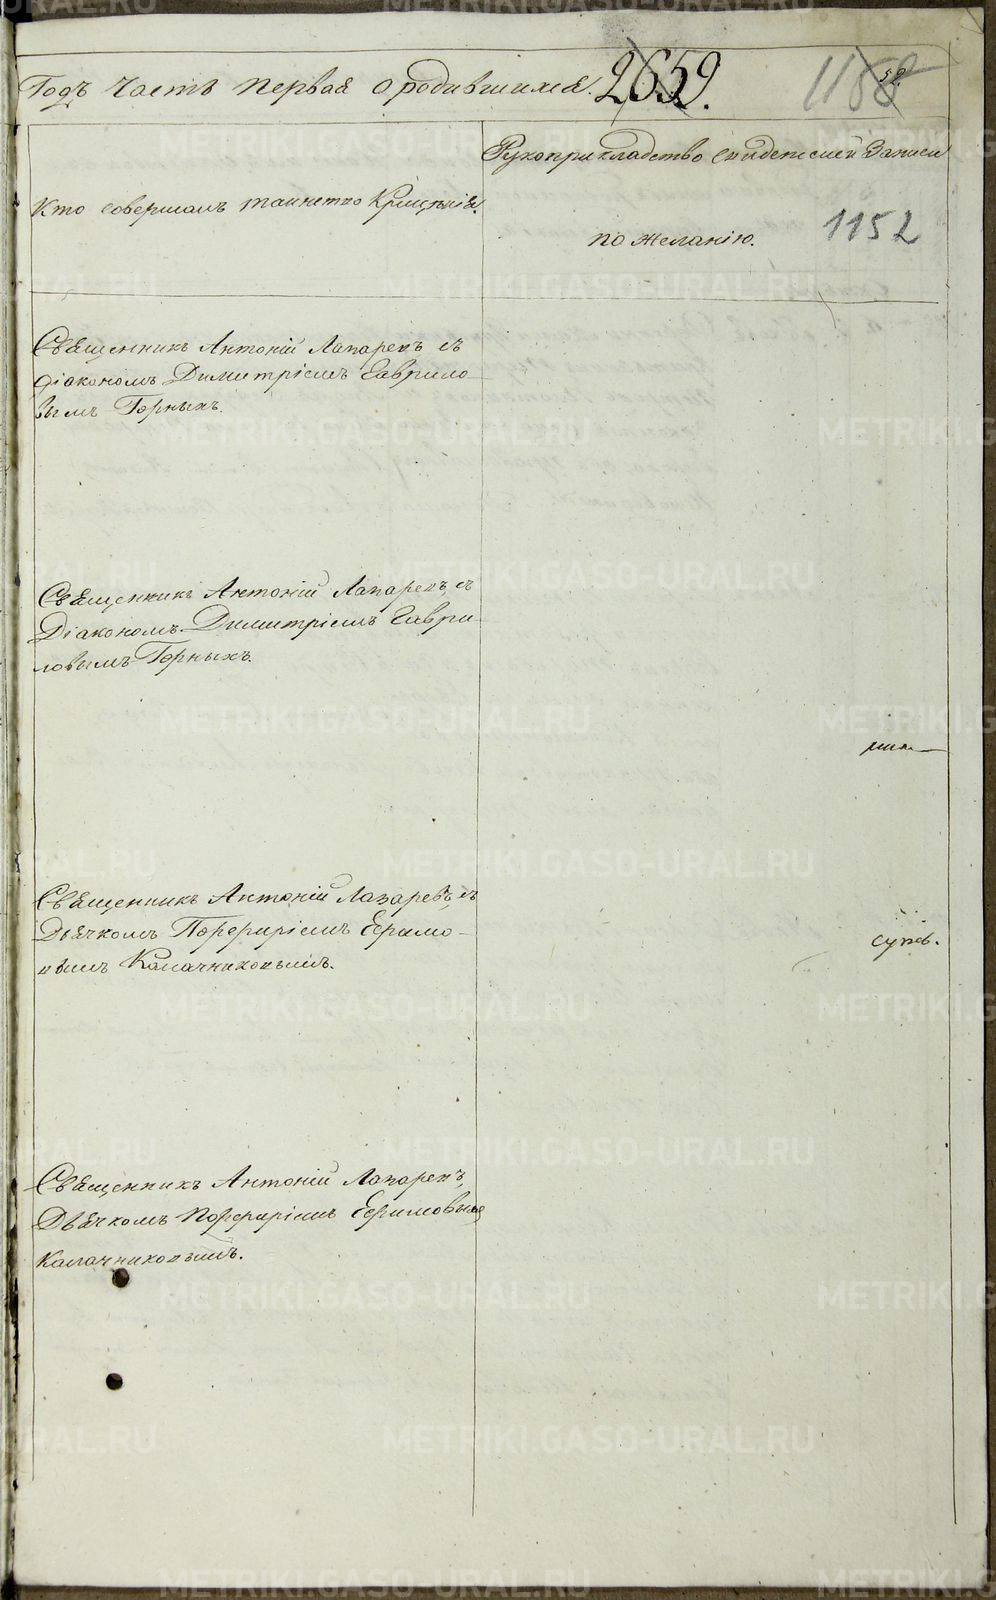 Годъ часть первая о родившихся. 2659. 1158
Кто совершалъ таинство Крещенія.
Рукоприкладство свидетелей Записи
по желанію.
1152
Священникъ Антоній Лазаревъ съ
діакономъ Димитріемъ Гаврило-
вымъ Горныхъ.
Священникъ Антоній Лазаревъ, съ
Діакономъ Димитріемъ Гаври
ловымъ Горныхъ.
Священникъ Антоній Лазаревъ, съ
Дьячкомъ Порфиріемъ Ефимо-
вымъ Калачниковымъ.
Священникъ Антоній Лазаревъ,
Дьячкомъ Порфиріемъ Ефимовымъ
Калачниковымъ.
METRIKI.GASO-URAL.RU